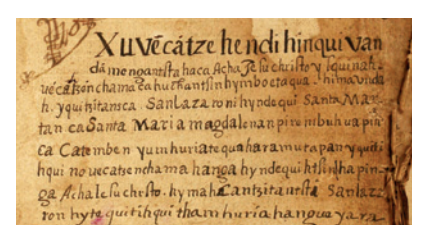 Xuvecátze hendi hinqui van
dámengantsta haca Acha Jesu christo y squinah.
uecatzon chama
h. yquitzitansca. Sanlaza roni hyndequi Santa Mar-
tan ca Santa Maria magdalenan piro mbuh ua pin
ca Catemben yumhuriatequaharamutapan yquiti
hqui no uecatzenchama hanga hyndequi htsindha pin-
ga Acha Iesu chrsto. hy mahcantzitantstá Sanlazz
ron hyte quitihqui tham huría hangua yara